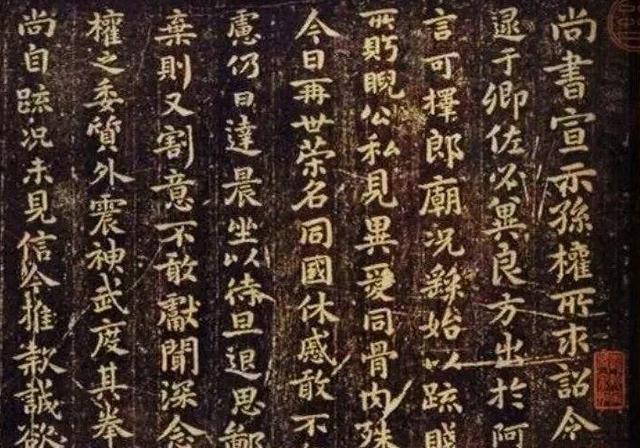 尚書宣示孫權所求詔令
逮于卿佐必兾良方出於阿
言可擇郎廟況繇始以疏賤
所眄睨公私見異愛同骨肉殊
今日再世榮名同國休慼敢不
慮仍日達晨坐以待旦退思鄙
棄則又割意不敢獻聞深念
權之委質外震神武度其拳
尚自疏況未見信今推款誠欲